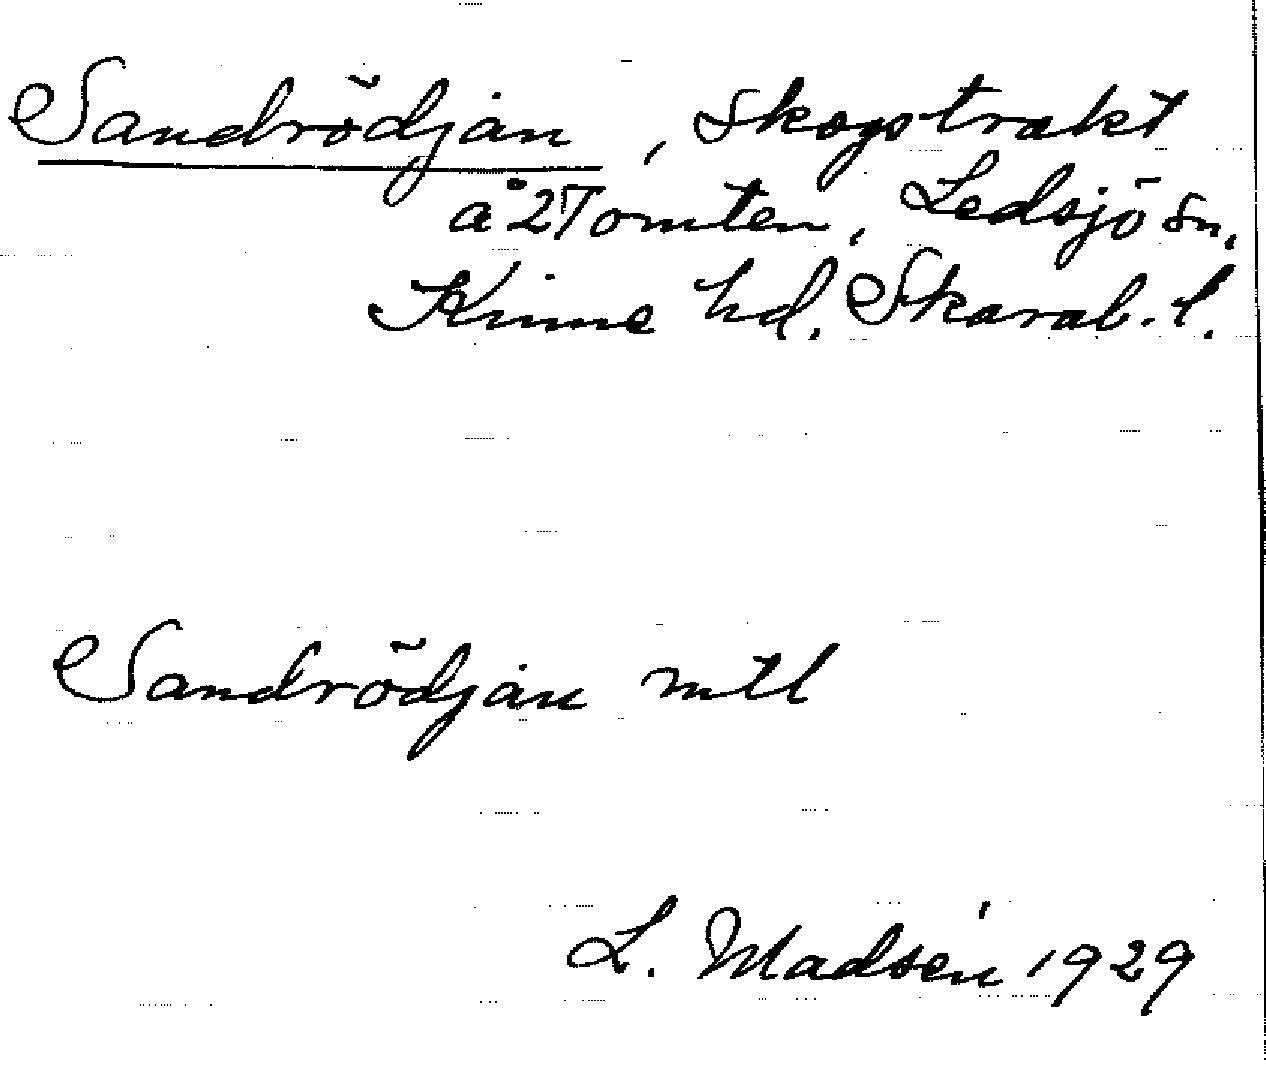 Sandrödjan, skogstrakt
å 2 Tomten, Ledsjö sn,
Kinne hd. Skarab. l.
Sandrödjan mtl
L. Madsén 1929